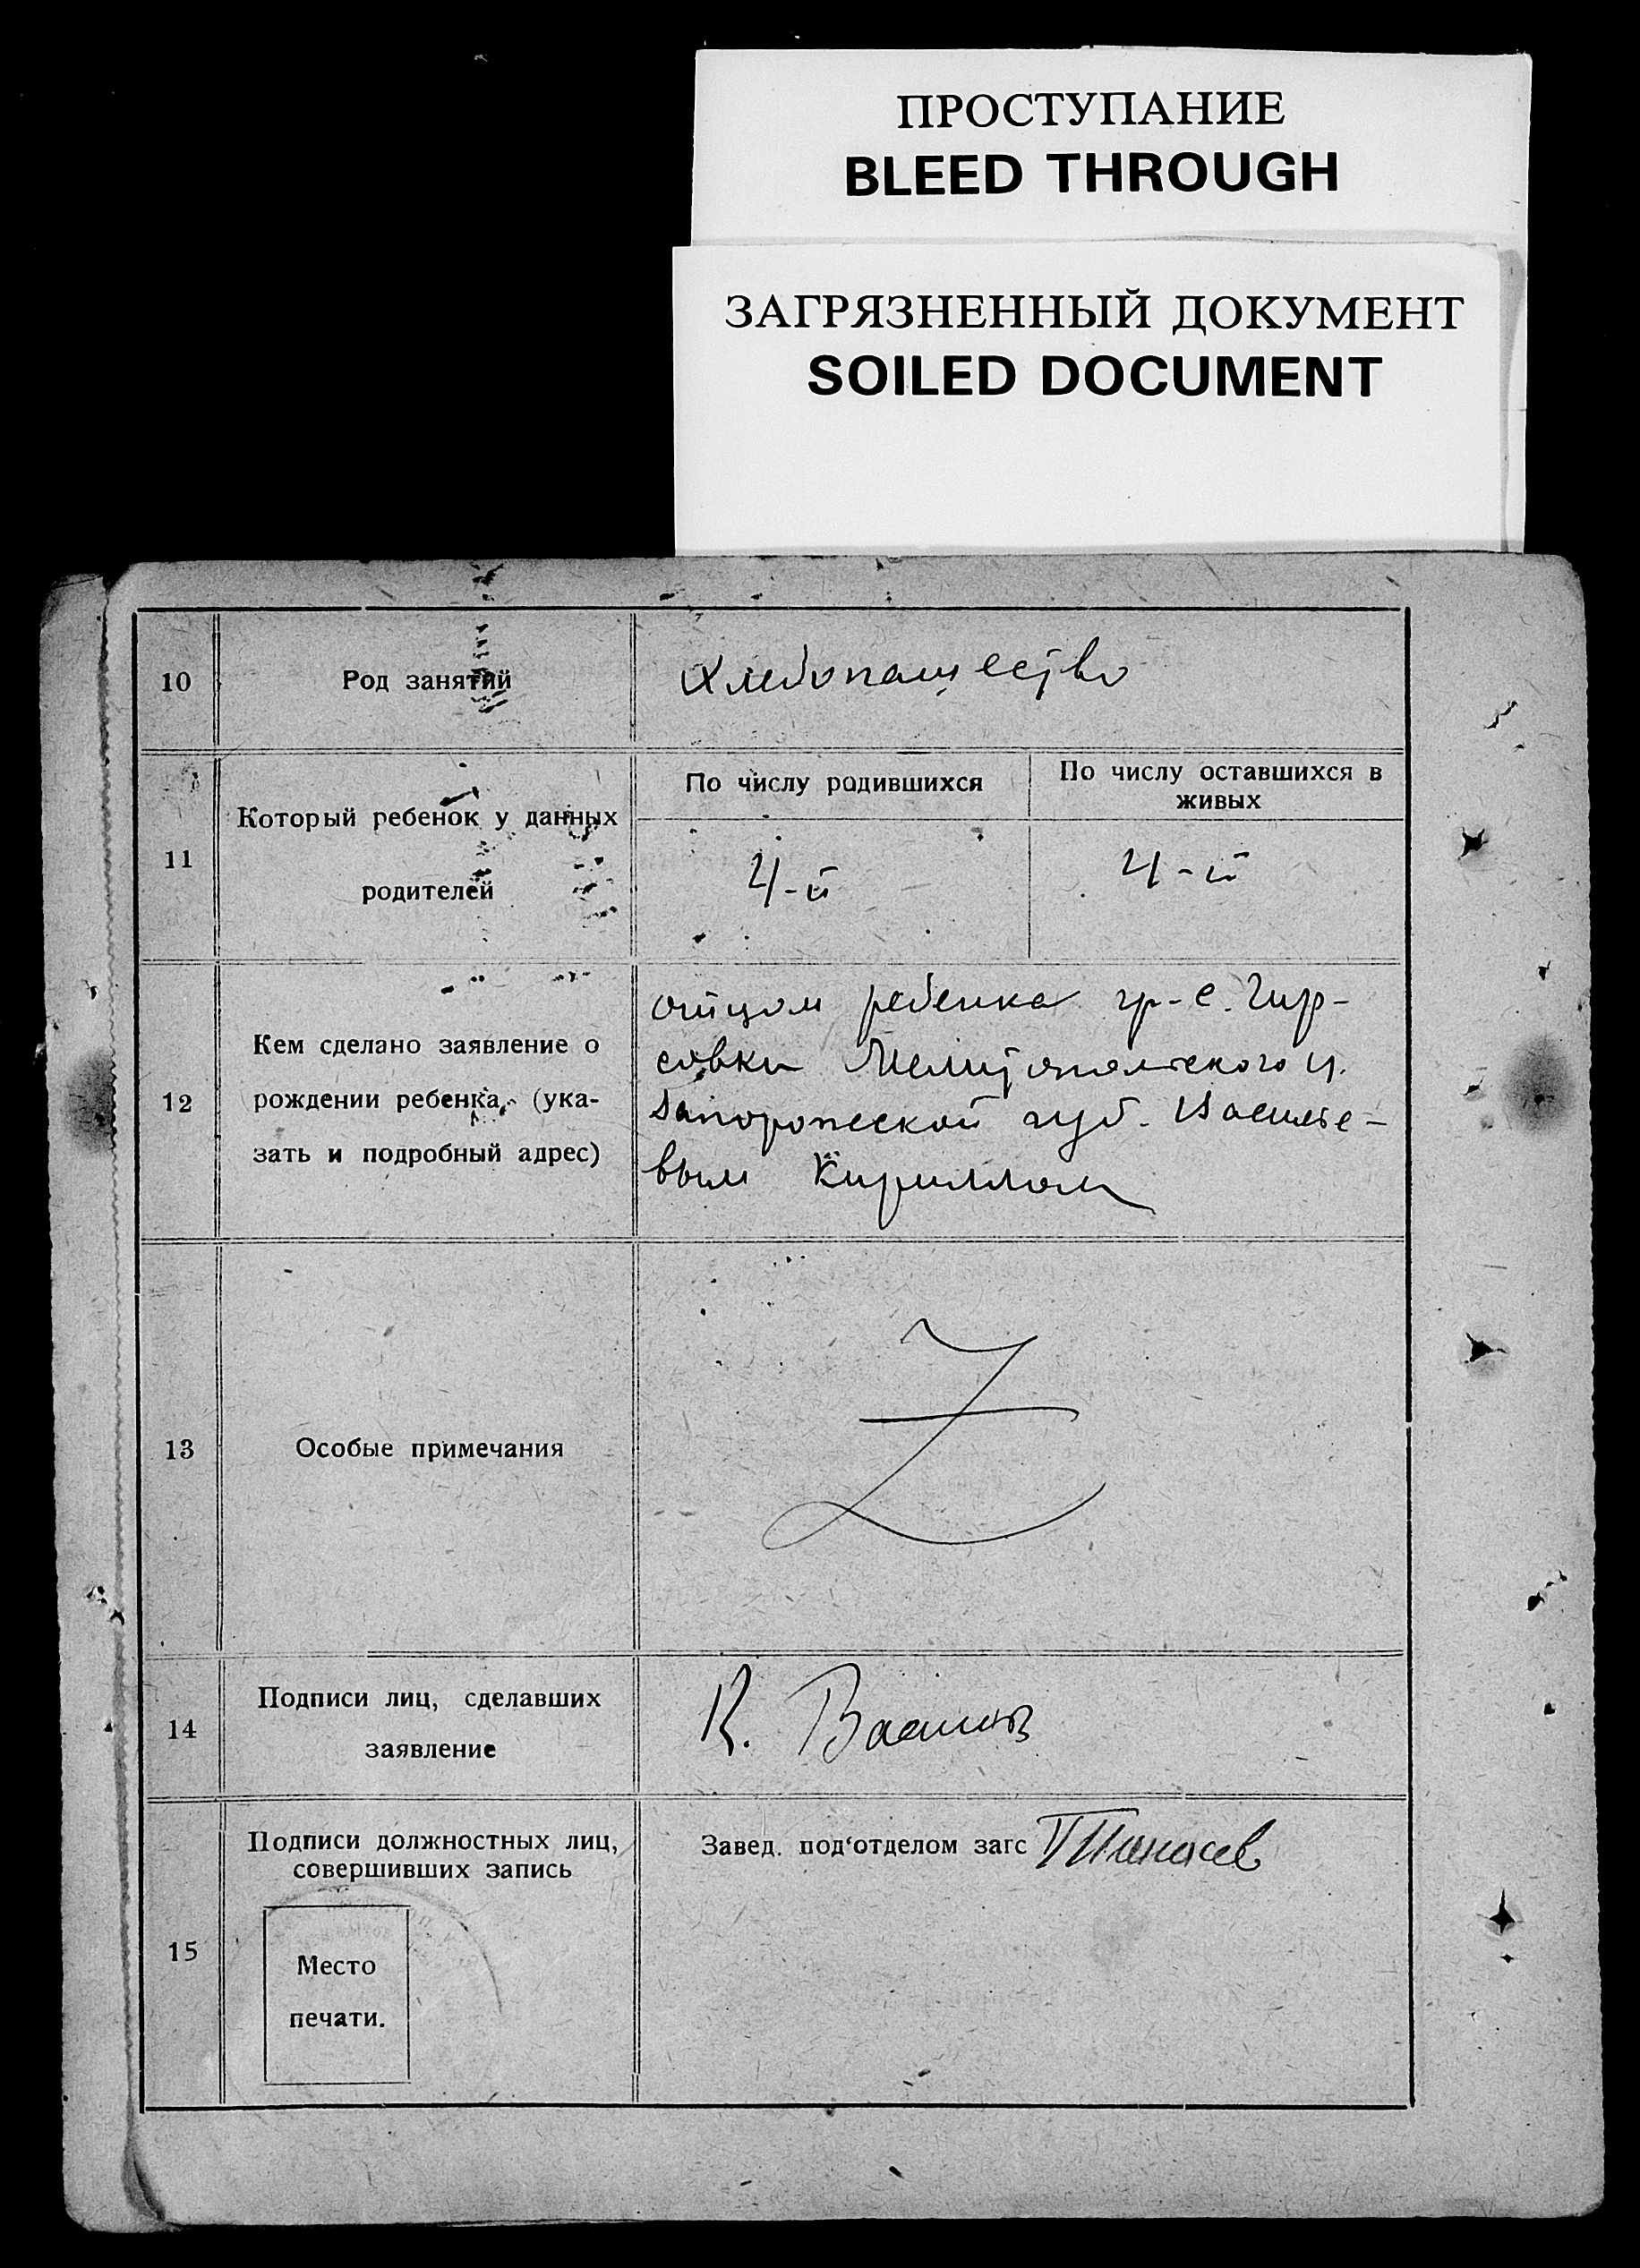 ПРОСТУПАНИЕ
BLEED THROUGH
ЗАГРЯЗНЕННЫЙ ДОКУМЕНТ
SOILED DOCUMENT
10
Род занятий
Хлебопашество
11
Который ребенок у данных
родителей
По числу родившихся
По числу оставшихся в
живых
4-й
4-й
12
Кем сделано заявление о
рождении ребенка, (ука-
зать и подробный адрес)
отцом ребенка гр-с. Гир-
совки Мелитопольского у.
Запорожской губ. Василье-
вым Кириллом
13
Особые примечания
Z
14
Подписи лиц, сделавших
заявление
К.
15
Подписи должностных лиц,
совершивших запись
Завед. под‘отделом загс
Место
печати.